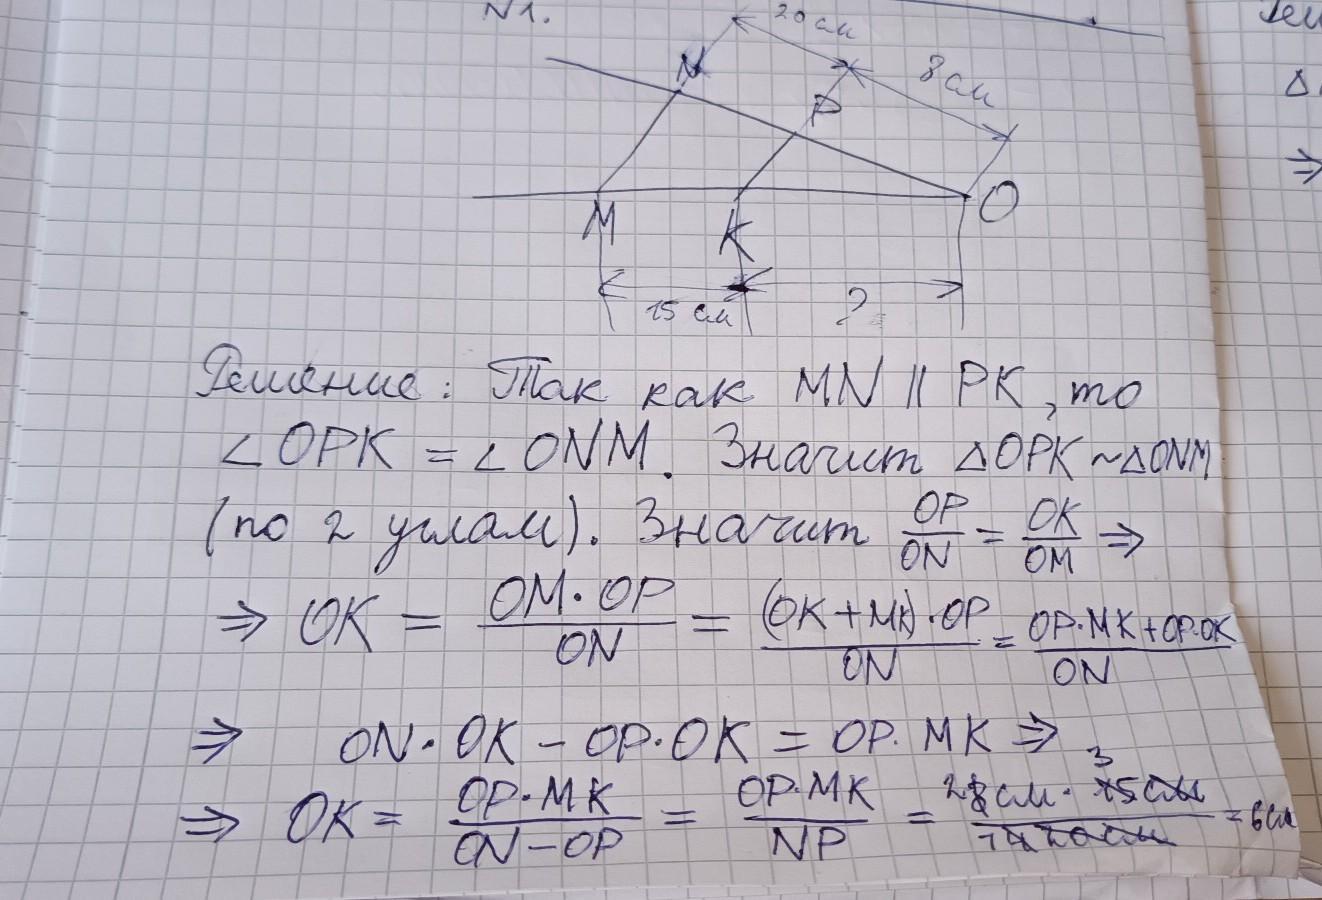 N1.
20 см
8 см
N
P
M
K
O
15 см
?
Решение: Так как MN || PK, то
∠OPK = ∠ONM. Значит △OPK ~ △ONM
(по 2 углам). Значит OP/ON = OK/OM ⇒
⇒ OK = OM·OP/ON = (OK+MK)·OP/ON = OP·MK+OP·OK/ON
⇒ ON·OK − OP·OK = OP·MK ⇒
⇒ OK = OP·MK/ON−OP = OP·MK/NP = 2 8 см · 3 15 см/20 см = 6 см
Δ
⇒